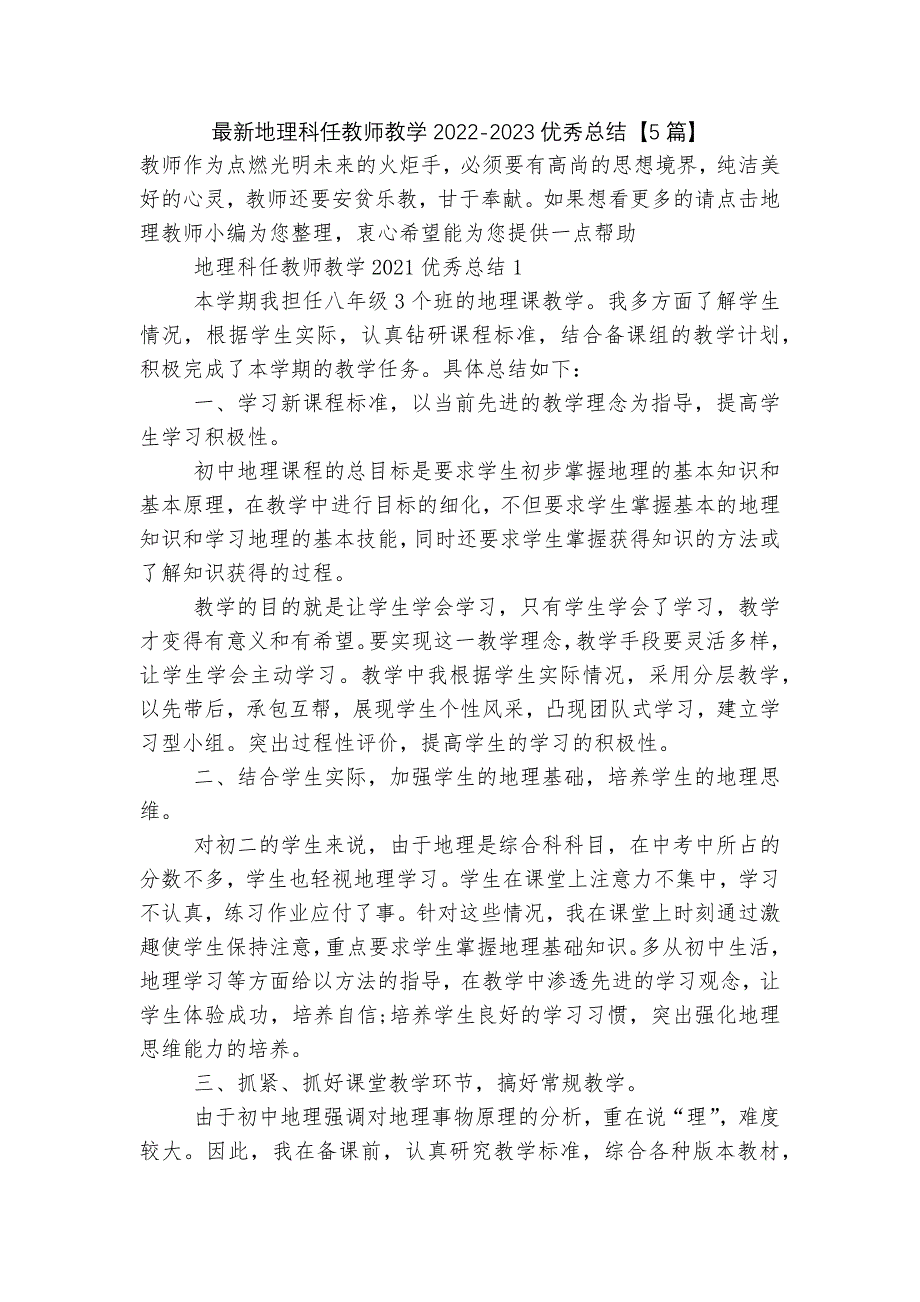 最新地理科任教师教学 2022-2023 优秀总结【5 篇】
教师作为点燃光明未来的火炬手，必须要有高尚的思想境界，纯洁美
好的心灵，教师还要安贫乐教，甘于奉献。如果想看更多的请点击地
理教师小编为您整理，衷心希望能为您提供一点帮助
地理科任教师教学 2021 优秀总结 1
本学期我担任八年级 3 个班的地理课教学。我多方面了解学生
情况，根据学生实际，认真钻研课程标准，结合备课组的教学计划，
积极完成了本学期的教学任务。具体总结如下：
一、学习新课程标准，以当前先进的教学理念为指导，提高学
生学习积极性。
初中地理课程的总目标是要求学生初步掌握地理的基本知识和
基本原理，在教学中进行目标的细化，不但要求学生掌握基本的地理
知识和学习地理的基本技能，同时还要求学生掌握获得知识的方法或
了解知识获得的过程。
教学的目的就是让学生学会学习，只有学生学会了学习，教学
才变得有意义和有希望。要实现这一教学理念，教学手段要灵活多样，
让学生学会主动学习。教学中我根据学生实际情况，采用分层教学，
以先带后，承包互帮，展现学生个性风采，凸现团队式学习，建立学
习型小组。突出过程性评价，提高学生的学习的积极性。
二、结合学生实际，加强学生的地理基础，培养学生的地理思
维。
对初二的学生来说，由于地理是综合科科目，在中考中所占的
分数不多，学生也轻视地理学习。学生在课堂上注意力不集中，学习
不认真，练习作业应付了事。针对这些情况，我在课堂上时刻通过激
趣使学生保持注意，重点要求学生掌握地理基础知识。多从初中生活，
地理学习等方面给以方法的指导，在教学中渗透先进的学习观念，让
学生体验成功，培养自信;培养学生良好的学习习惯，突出强化地理
思维能力的培养。
三、抓紧、抓好课堂教学环节，搞好常规教学。
由于初中地理强调对地理事物原理的分析，重在说“理”，难度
较大。因此，我在备课前，认真研究教学标准，综合各种版本教材，